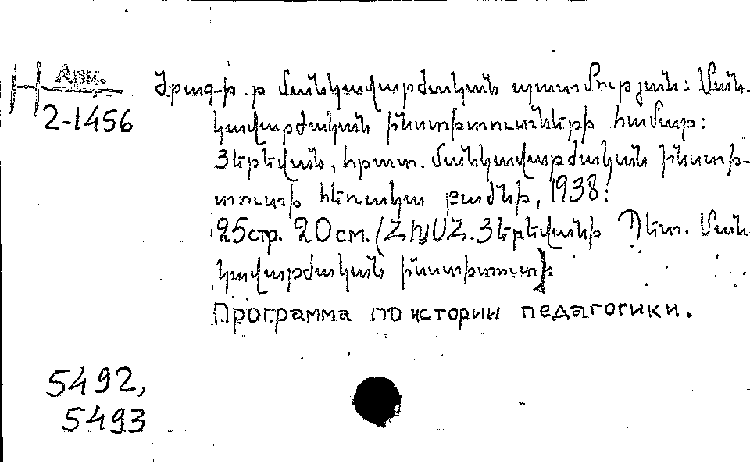 Арм.
2-1456
Ծրագ-ի.ր մանկավարժական պատմության: Ման-
կավարժական ինստիտուտների համար:
Յերեվան, հրատ. մանկավարժական ինստի-
տուտի հեռակա բաժնի, 1938:
25стр. 20см. (ՀԽՍՀ. Յերեվանի Պետ. Ման
կավարժական ինստիտուտ)
Программа по истории педагогики.
5492,
5493